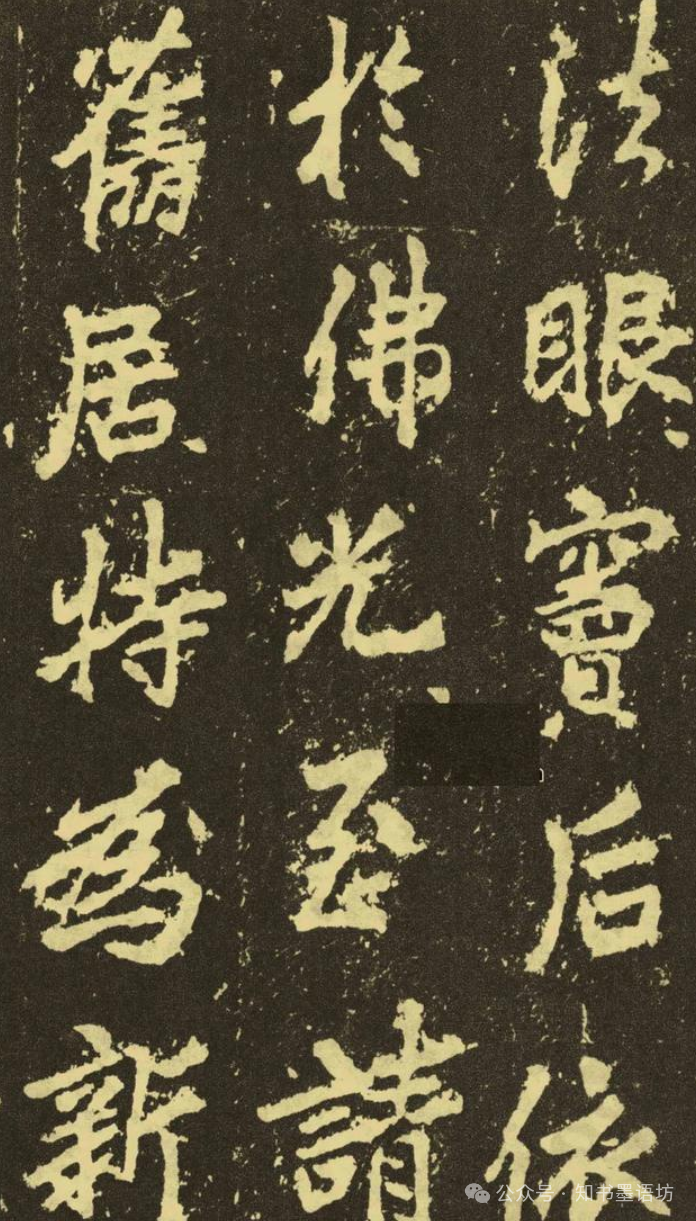 法眼竇后依
於佛光至請
舊居特為新
公众号 · 知书墨语坊